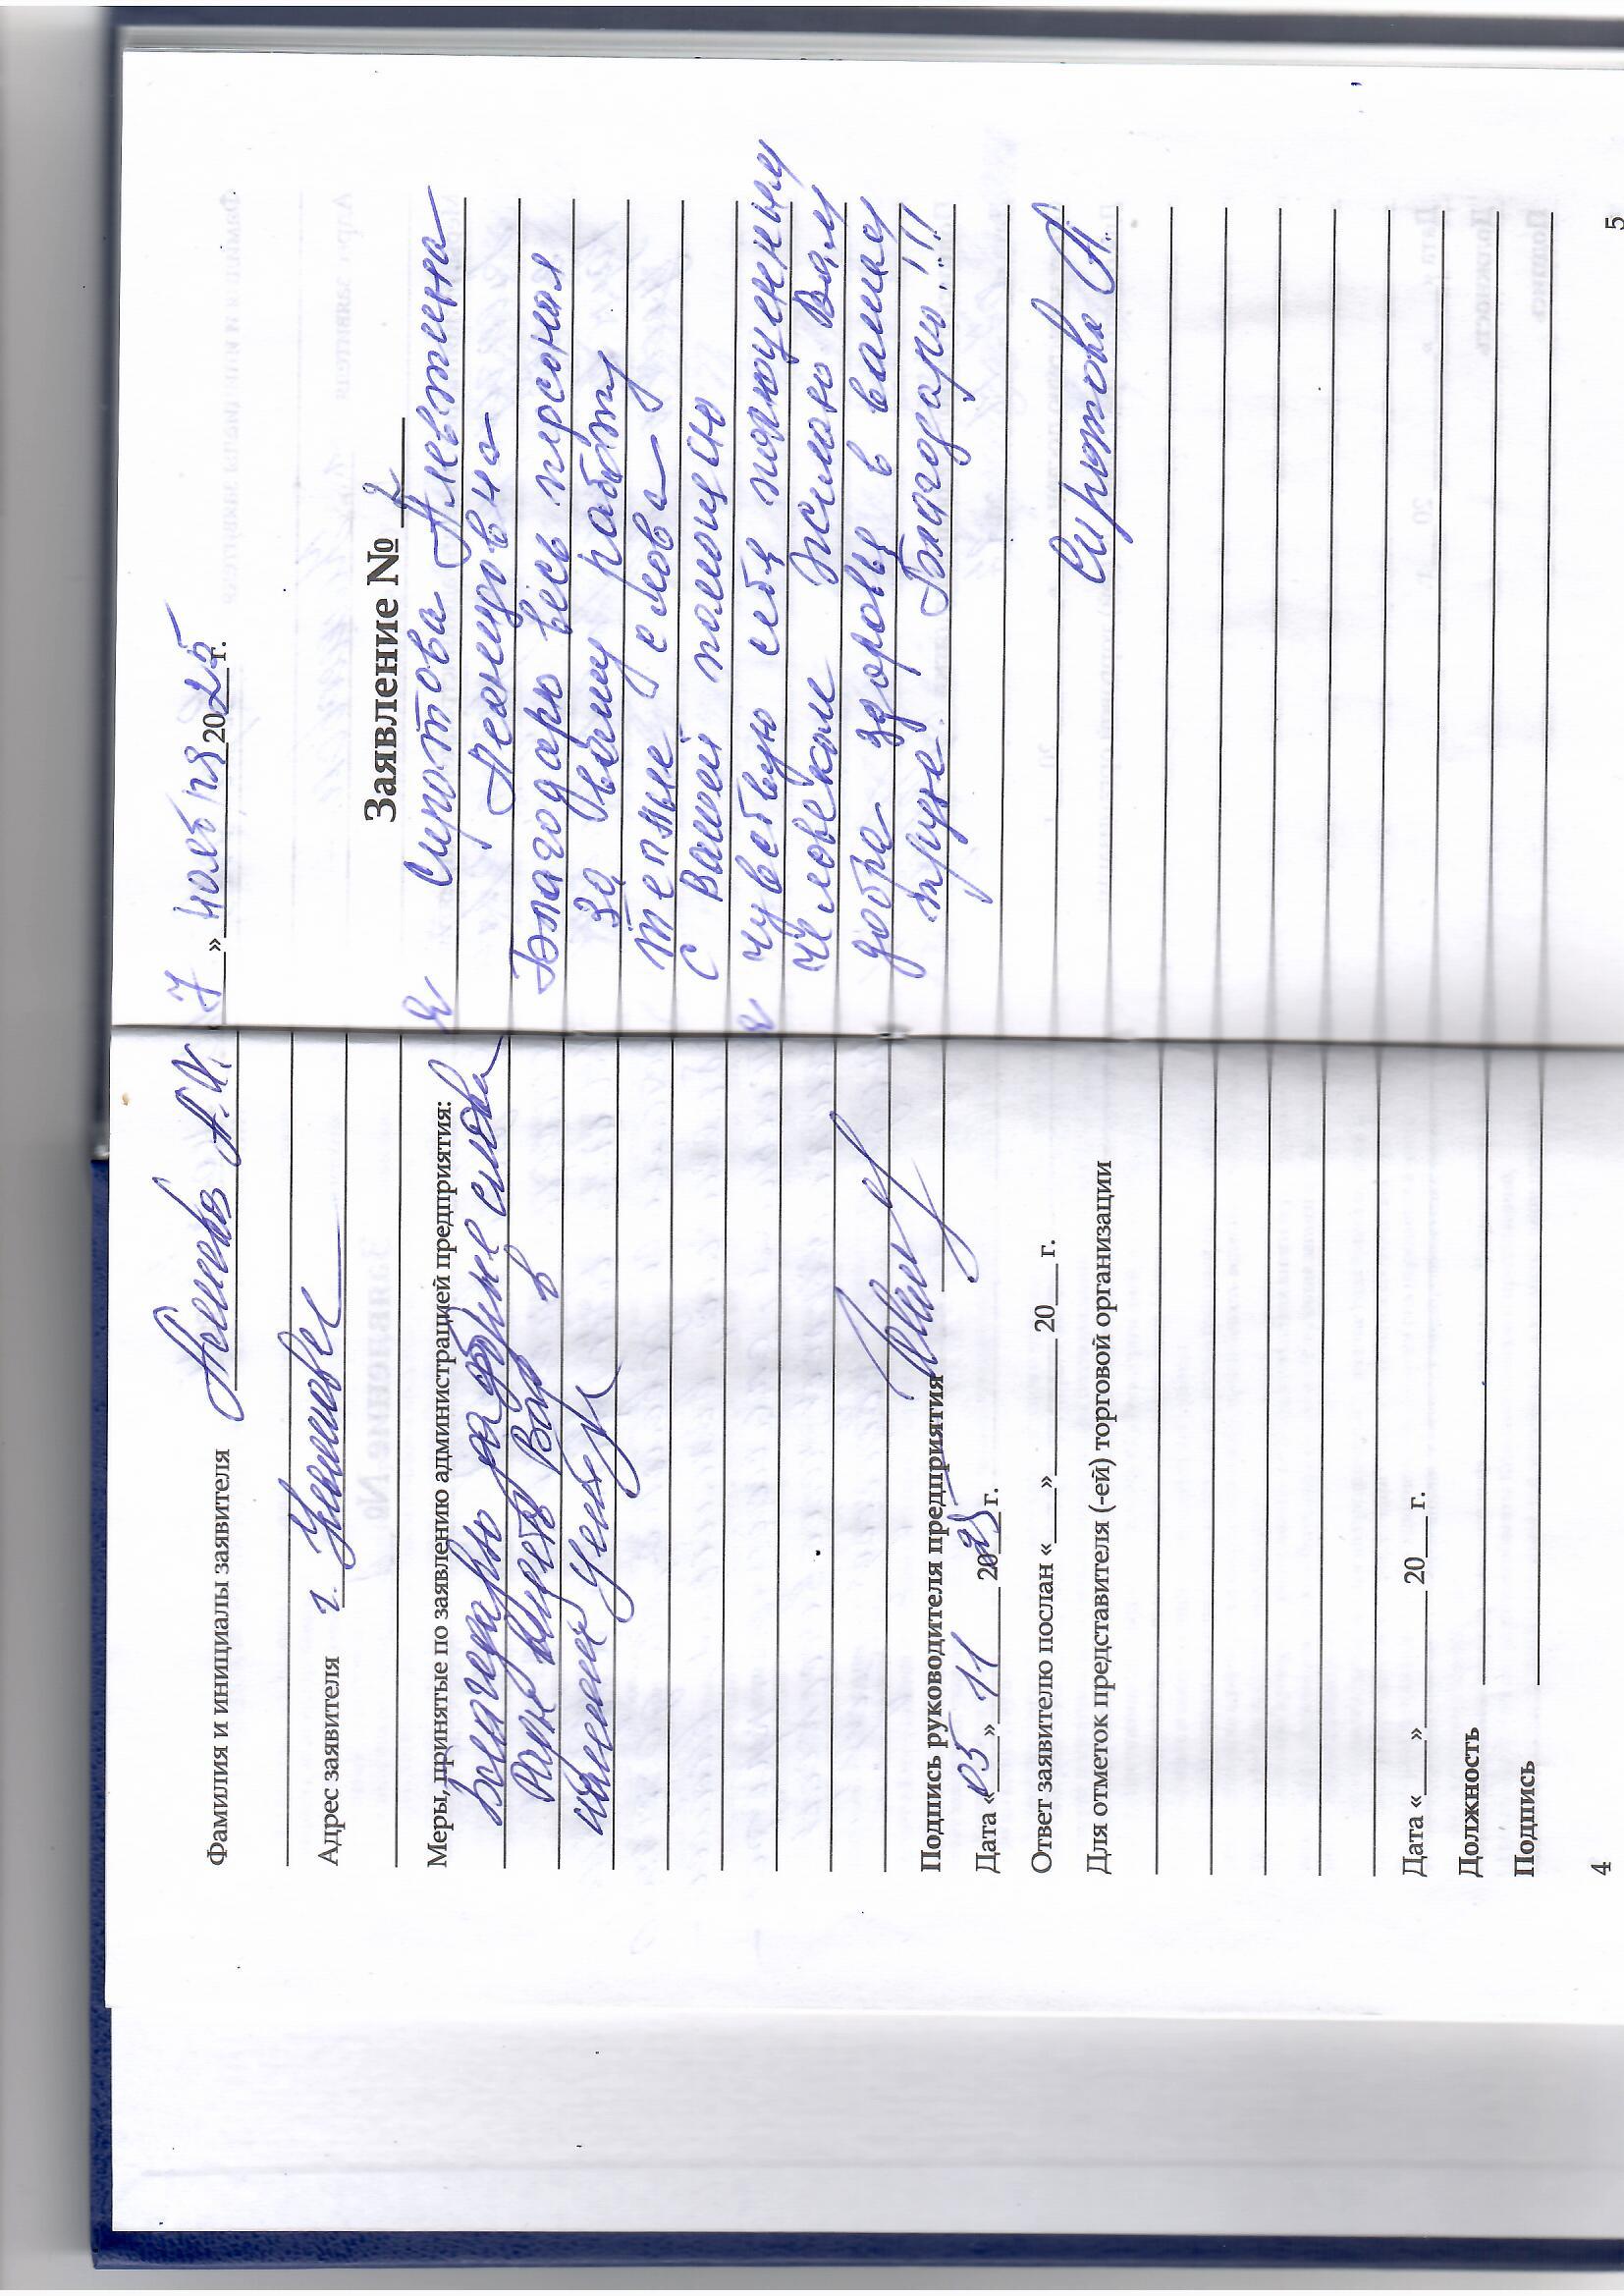 Фамилия и инициалы заявителя А.И.
Адрес заявителя г.
Меры, принятые по заявлению администрацией предприятия:
Благодарю за добрые слова
Рады видеть Вас в
нашем центре
Подпись руководителя предприятия
Дата «05» 11 2025 г.
Ответ заявителю послан «___»________20___г.
Для отметок представителя (-ей) торговой организации
Дата «___»________20___г.
Должность
Подпись
4
7 » ноября 2025 г.
Заявление № 2
Я Сиротова Алевтина
Леонидовна
Благодарю весь персонал
за вашу работу
теплые слова
с вашей помощью
я чувствую себя полноценным
человеком Желаю Вам
добра здоровья в вашем
труде. Благодарю!!!
Сиротова А.
5